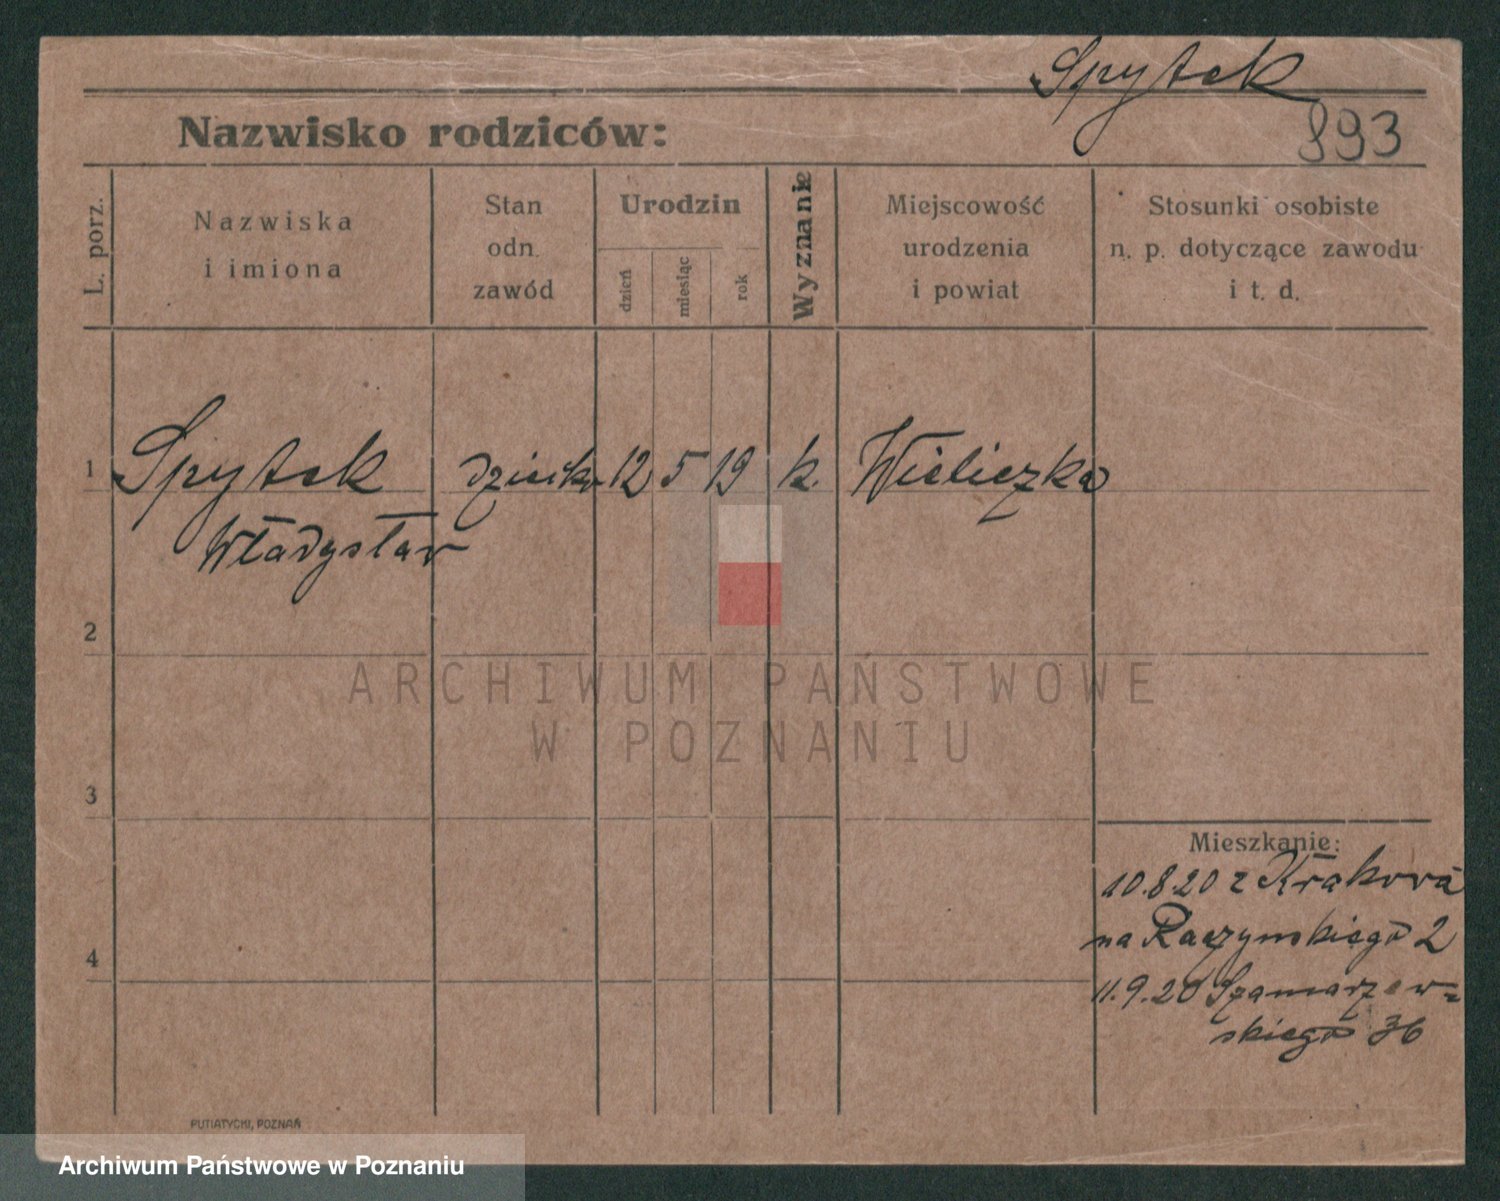 Spytek
Nazwisko rodziców:
893
L. porz.
Nazwiska
i imiona
Stan
odn.
zawód
Urodzin
dzień
miesiąc
rok
Wyznanie
Miejscowość
urodzenia
i powiat
Stosunki osobiste
n. p. dotyczące zawodu
i t. d.
1 Spytek dziecko 12 5 19 k. Wieliczka
Władysław
2
ARCHIWUM PAŃSTWOWE
W POZNANIU
3
Mieszkanie:
10.8.20 z Krakowa
na Raczyńskiego 2
4
11.9.20 Szamarzew-
skiego 36
PUTIATYCKI, POZNAŃ
Archiwum Państwowe w Poznaniu